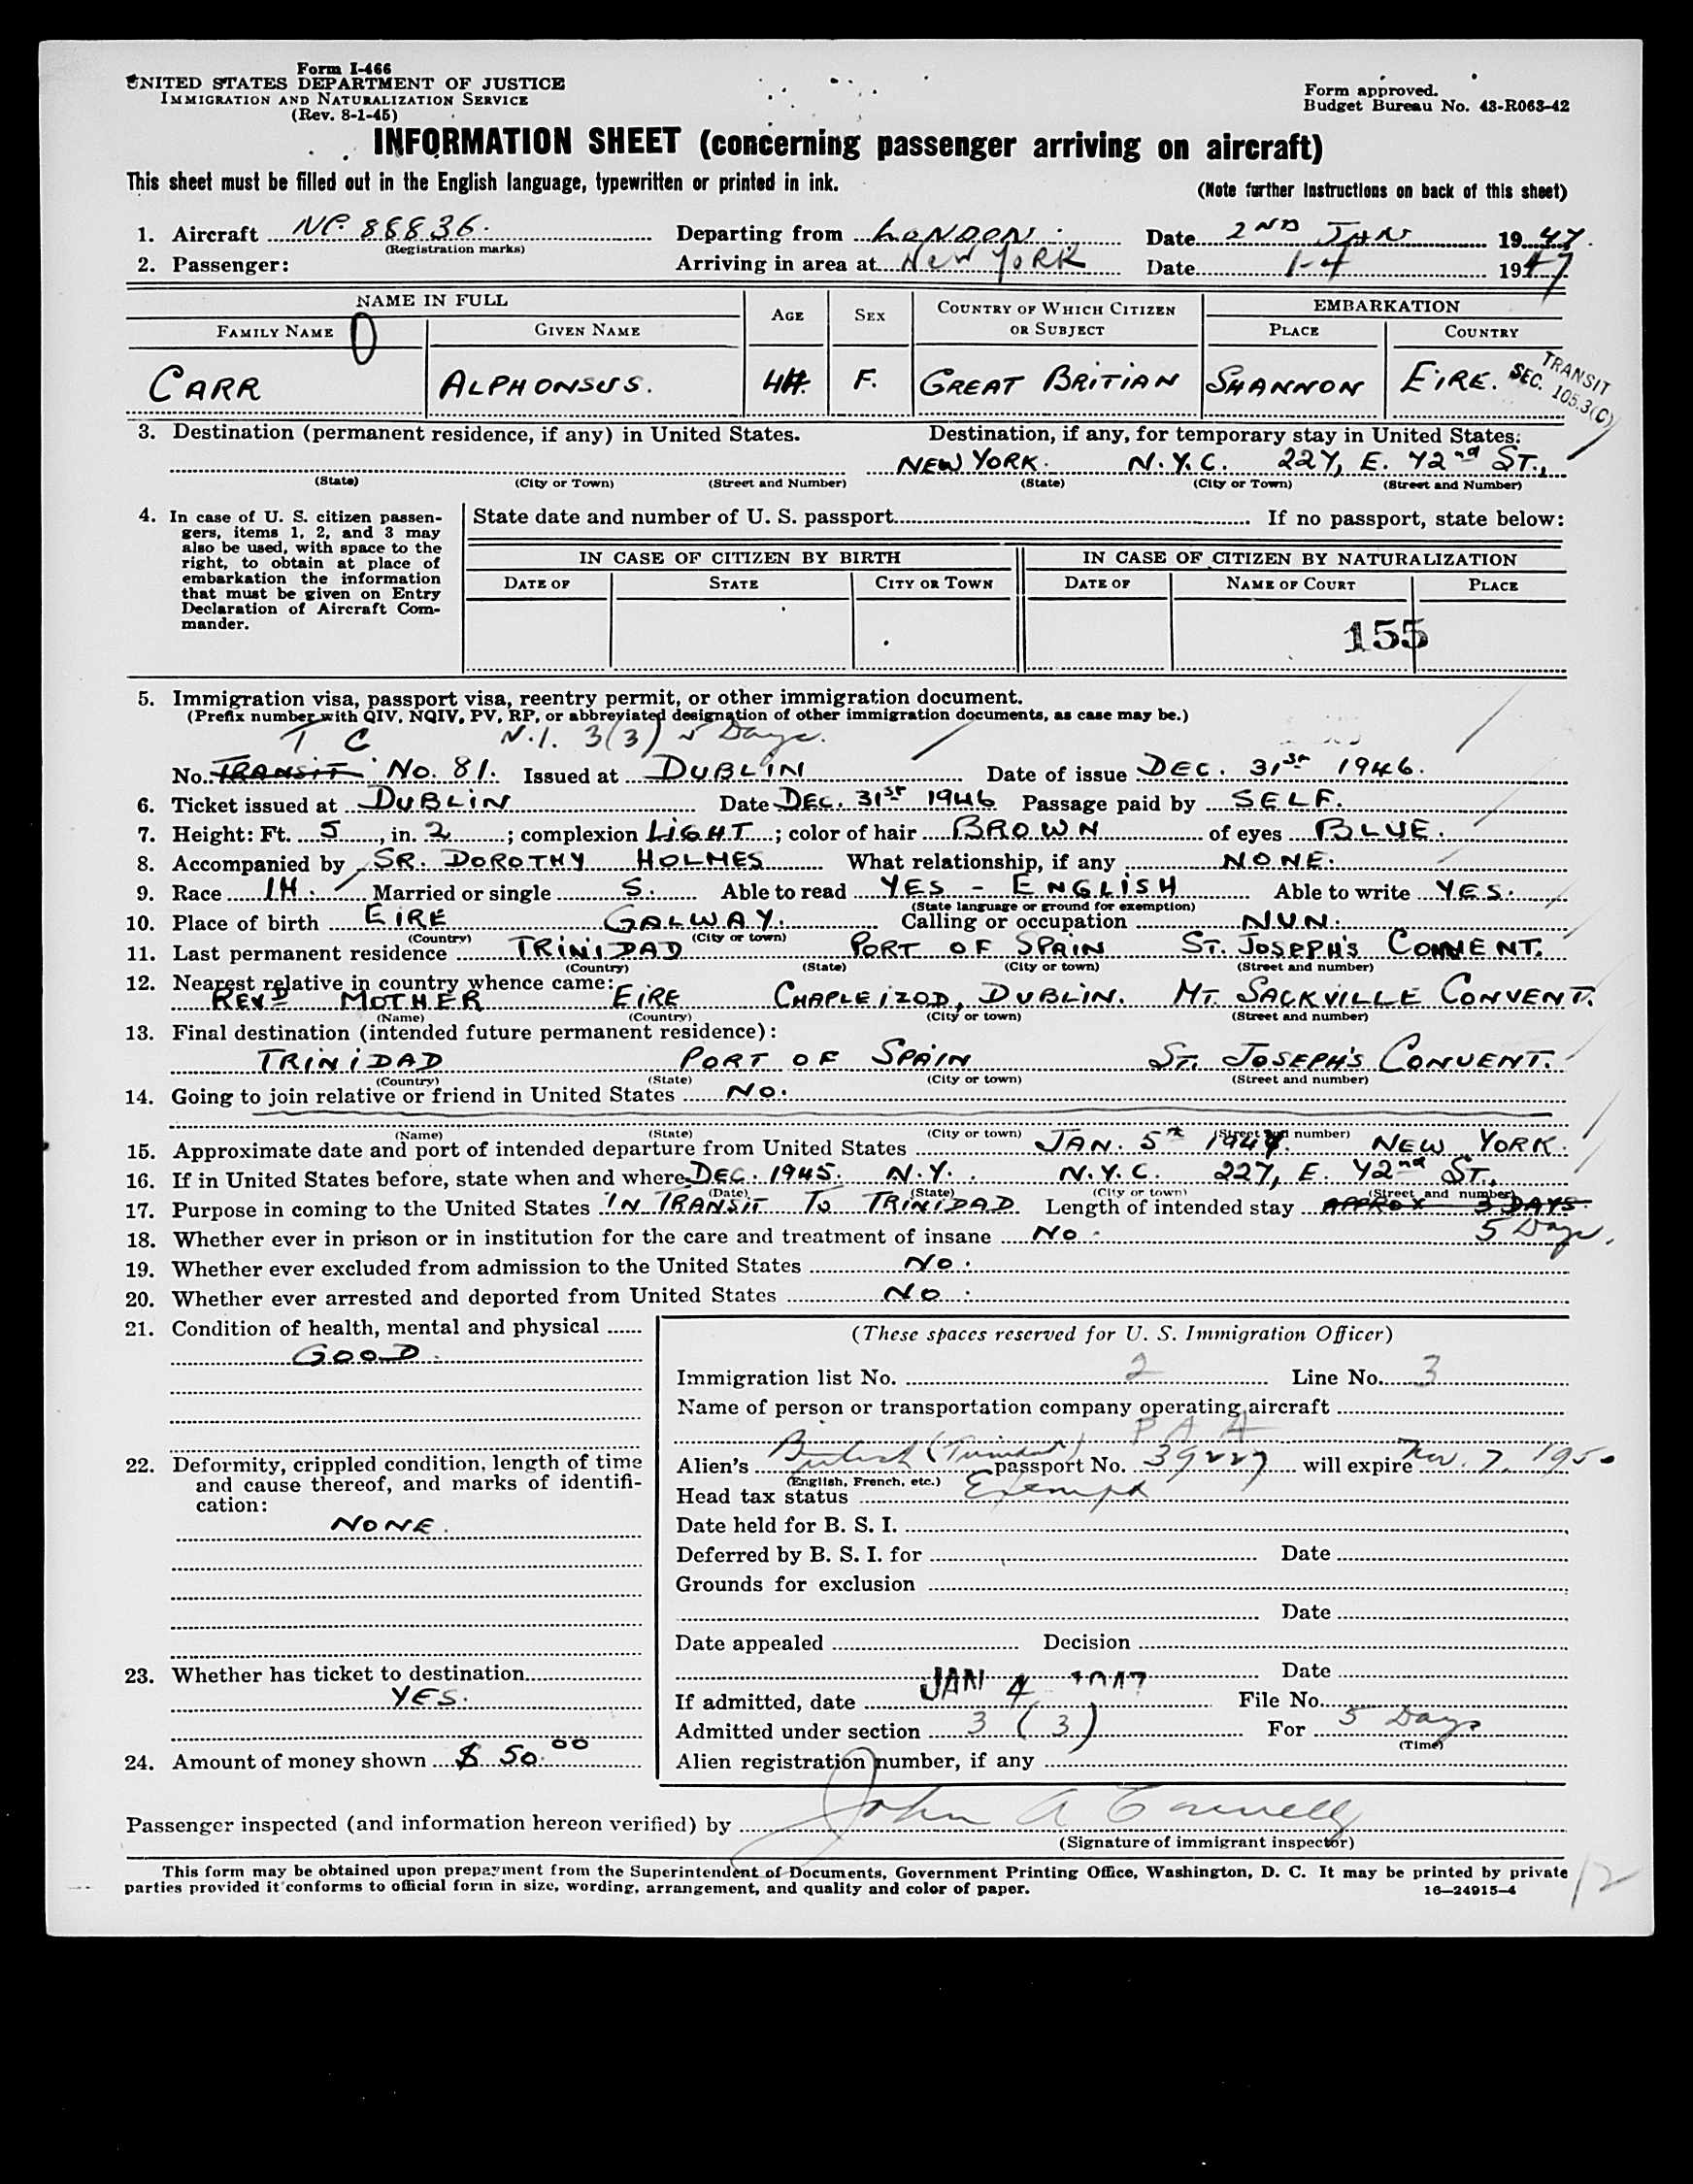 Form I-466
UNITED STATES DEPARTMENT OF JUSTICE
IMMIGRATION AND NATURALIZATION SERVICE
(Rev. 8-1-45)
Form approved.
Budget Bureau No. 43-R063-42
INFORMATION SHEET (concerning passenger arriving on aircraft)
This sheet must be filled out in the English language, typewritten or printed in ink.
(Note further instructions on back of this sheet)
1. Aircraft 88836. Departing from LONDON. Date 2ND JAN 1947.
(Registration marks)
2. Passenger: Arriving in area at New YORK Date 1-4 1947
NAME IN FULL AGE SEX COUNTRY OF WHICH CITIZEN OR SUBJECT EMBARKATION
FAMILY NAME GIVEN NAME PLACE COUNTRY
CARR ALPHONSUS. F. GREAT BRITIAN SHANNON EIRE.
TRANSIT
SEC. 105.3(C)
3. Destination (permanent residence, if any) in United States. Destination, if any, for temporary stay in United States.
NEW YORK. N.Y.C. 227, E. 72nd ST.,
(State) (City or Town) (Street and Number) (State) (City or Town) (Street and Number)
4. In case of U. S. citizen passen-
gers, items 1, 2, and 3 may
also be used, with space to the
right, to obtain at place of
embarkation the information
that must be given on Entry
Declaration of Aircraft Com-
mander.
State date and number of U. S. passport If no passport, state below:
IN CASE OF CITIZEN BY BIRTH IN CASE OF CITIZEN BY NATURALIZATION
DATE OF STATE CITY OR TOWN DATE OF NAME OF COURT PLACE
155
5. Immigration visa, passport visa, reentry permit, or other immigration document.
(Prefix number with QIV, NQIV, PV, RP, or abbreviated designation of other immigration documents, as case may be.)
T C N.I. 3(3) 5 Days.
No. TRANSIT No. 81. Issued at DUBLIN Date of issue DEC. 31st 1946.
6. Ticket issued at DUBLIN Date DEC. 31st 1946 Passage paid by SELF.
7. Height: Ft. 5, in. 2; complexion LIGHT; color of hair BROWN of eyes BLUE.
8. Accompanied by SR. DOROTHY HOLMES What relationship, if any NONE.
9. Race IH. Married or single S. Able to read YES - ENGLISH Able to write YES.
(State language or ground for exemption)
10. Place of birth EIRE GALWAY. Calling or occupation NUN.
(Country) (City or town)
11. Last permanent residence TRINIDAD PORT OF SPAIN ST. JOSEPH'S CONVENT.
(Country) (State) (City or town) (Street and number)
12. Nearest relative in country whence came:
REVD MOTHER EIRE CHAPLEIZOD, DUBLIN. MT. SACKVILLE CONVENT.
(Name) (Country) (City or town) (Street and number)
13. Final destination (intended future permanent residence):
TRINIDAD PORT OF SPAIN ST. JOSEPH'S CONVENT.
(Country) (State) (City or town) (Street and number)
14. Going to join relative or friend in United States No.
(Name) (State) (City or town) (Street and number)
15. Approximate date and port of intended departure from United States JAN. 5th 1947. NEW YORK.
16. If in United States before, state when and where DEC. 1945. N.Y. N.Y.C. 227, E. 72nd ST.,
(Date) (State) (City or town) (Street and number)
17. Purpose in coming to the United States IN TRANSIT To TRINIDAD. Length of intended stay APPROX 3 DAYS.
5 Days.
18. Whether ever in prison or in institution for the care and treatment of insane No.
19. Whether ever excluded from admission to the United States No.
20. Whether ever arrested and deported from United States No.
21. Condition of health, mental and physical
GOOD.
22. Deformity, crippled condition, length of time
and cause thereof, and marks of identifi-
cation:
NONE.
23. Whether has ticket to destination
YES.
24. Amount of money shown $ 50.00
(These spaces reserved for U. S. Immigration Officer)
Immigration list No. 2 Line No. 3
Name of person or transportation company operating aircraft
P A A
Alien's British (Trinidad) passport No. 39227 will expire Nov. 7, 1950
(English, French, etc.)
Head tax status Exempt
Date held for B. S. I.
Deferred by B. S. I. for Date
Grounds for exclusion
Date
Date appealed Decision
Date
If admitted, date JAN 4 1947 File No.
Admitted under section 3 (3) For 5 Days
(Time)
Alien registration number, if any
Passenger inspected (and information hereon verified) by John A
(Signature of immigrant inspector)
This form may be obtained upon prepayment from the Superintendent of Documents, Government Printing Office, Washington, D. C. It may be printed by private
parties provided it conforms to official form in size, wording, arrangement, and quality and color of paper. 16—24915-4
12